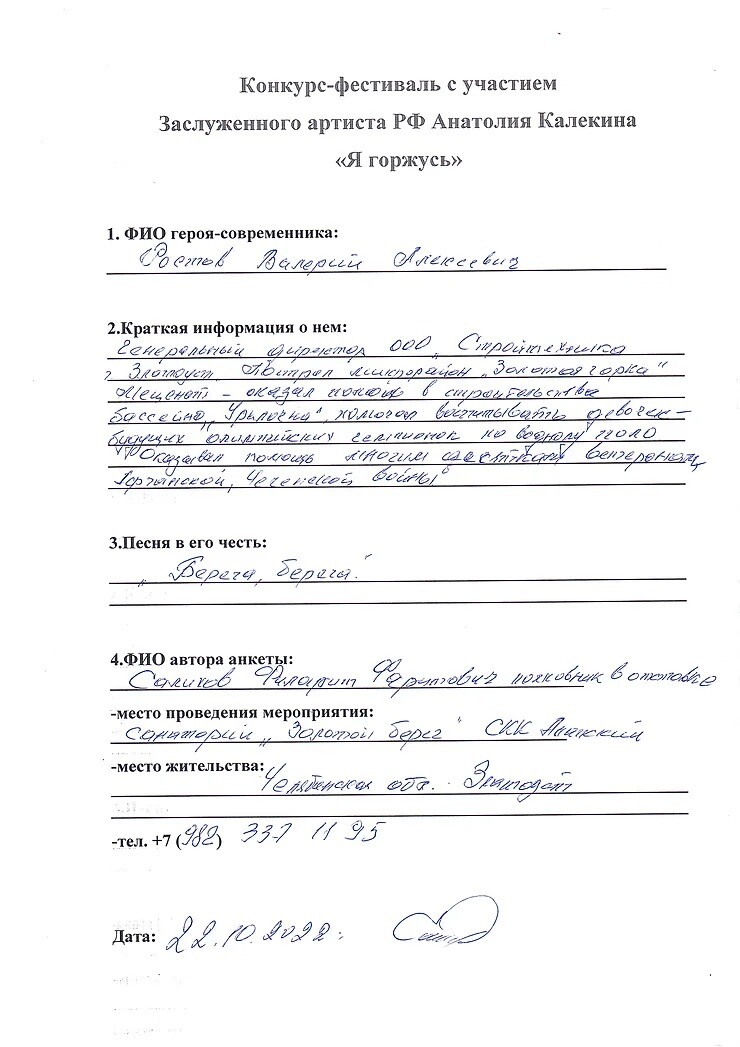 Конкурс-фестиваль с участием
Заслуженного артиста РФ Анатолия Калекина
«Я горжусь»
1. ФИО героя-современника:
Ростов Валерий Алексеевич
2.Краткая информация о нем:
Генеральный директор ООО „Стройтехника
г Златоуст. Построил микрорайон „Золотая горка"
Меценат – оказал помощь в строительстве
бассейна „Уралочка", помогал воспитывать девочек –
будущих олимпийских чемпионок по водному поло
Оказывал помощь многим ветеранам
Чеченской войны"
3.Песня в его честь:
„Берега, берега."
4.ФИО автора анкеты:
Салихов Филарит Фаритович полковник в отставке
-место проведения мероприятия:
Санаторий „Золотой берег" СКК
-место жительства:
Челябинская обл. Златоуст
-тел. +7 (982) 337 11 95
Дата: 22.10.2022.